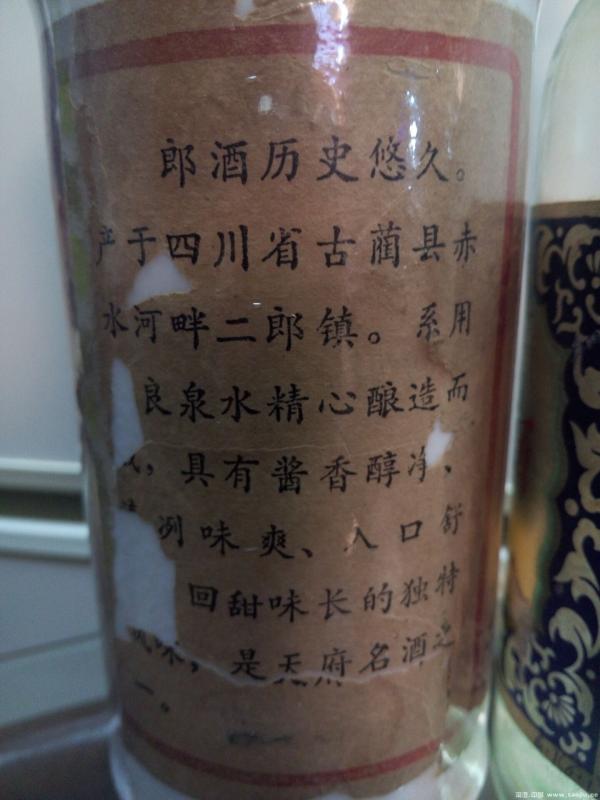 郎酒历史悠久。
产于四川省古蔺县赤
水河畔二郎镇。系用
良泉水精心酿造而
成,具有酱香醇净、
洌味爽、入口舒
回甜味长的独特
风味,是天府名酒之
一。
www.taopu.cc